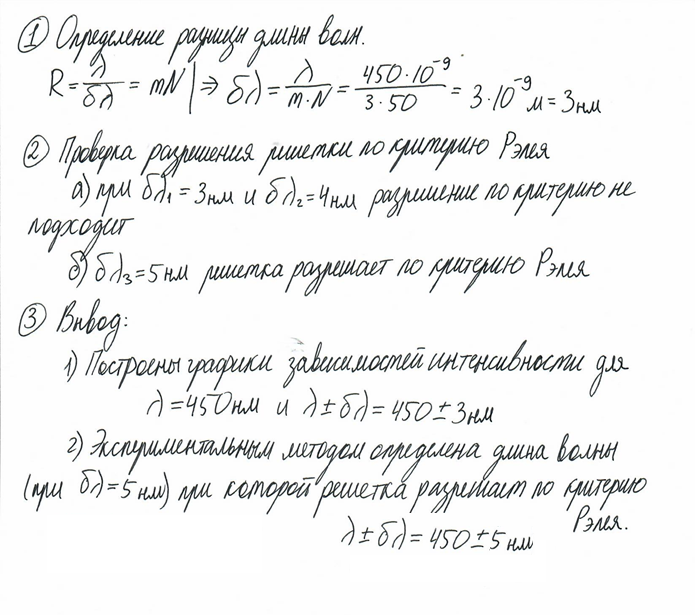 ① Определение разницы длины волн.
R = λ/δλ = mN | ⇒ δλ = λ/(m·N) = (450·10⁻⁹)/(3·50) = 3·10⁻⁹ м = 3нм
② Проверка разрешения решетки по критерию Рэлея
а) при δλ₁ = 3нм и δλ₂ = 4нм разрешение по критерию не
подходит
б) δλ₃ = 5нм решетка разрешает по критерию Рэлея
③ Вывод:
1) Построены графики зависимостей интенсивности для
λ = 450нм и λ ± δλ = 450 ± 3нм
2) Экспериментальным методом определена длина волны
(при δλ = 5нм) при которой решетка разрешает по критерию
Рэлея.
λ ± δλ = 450 ± 5нм